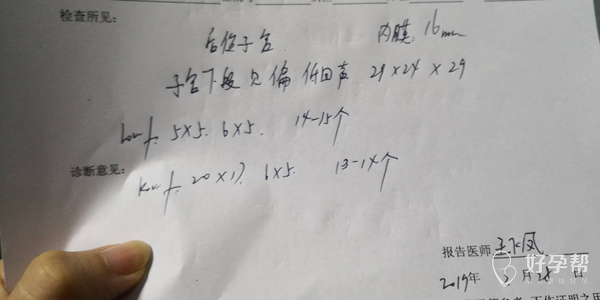 检查所见:
后位子宫 内膜 16mm
子宫下段见偏低回声 29×24×29
Lov f. 5×5. 6×5. 14-15个
诊断意见:
Rov f. 20×17. 6×5. 13-14个
报告医师
2019年 2月 28日
好孕帮